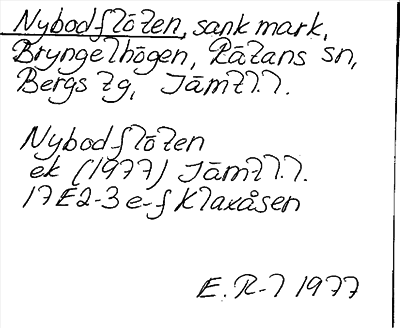 Nybodflöten, sank mark,
Bryngelhögen, Rätans sn,
Bergs tg, Jämtl.l.
Nybodflöten
ek (1977) Jämtl.l.
17E2-3e-f Klaxåsen
E. R-l 1977